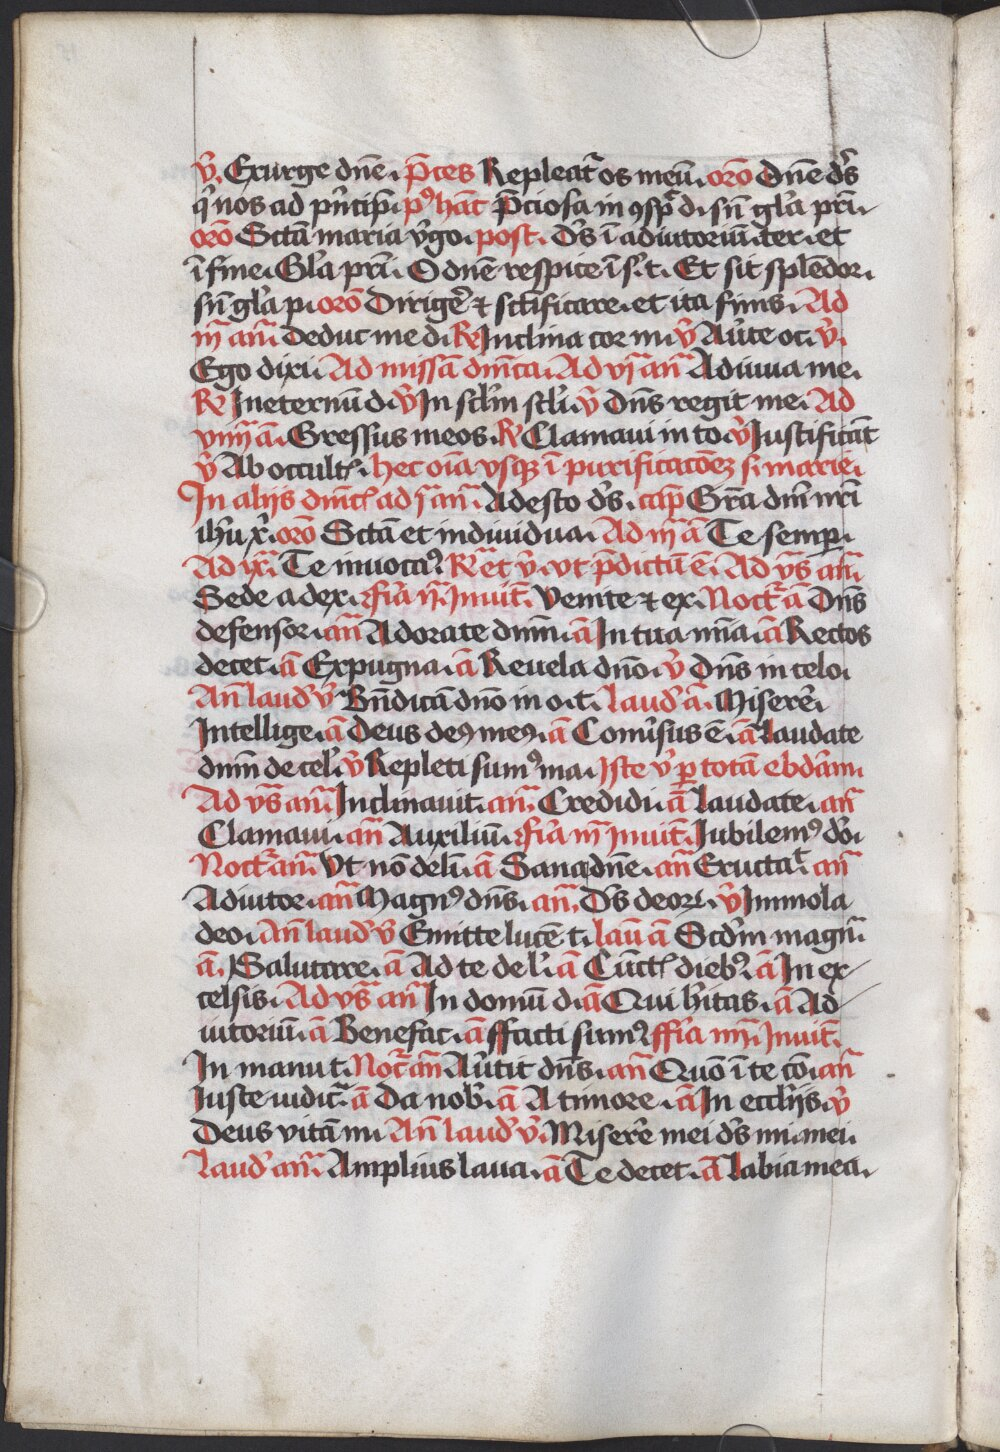 v̉. Exurge dn̄e. p̄ces Repleat᷑ os meū. or̄o Dn̄e ds̄
q̇ nos ad pn̉cip̄. pꝰ hāc p̄ciosa in ꝯsp̄ d. sn̄ gl̉a pr̄i.
or̄o Sctā maria v̉go. post. Ds̄ ī adiutoriū. ter. et
ī fine. Gl̉a pr̄i. O dn̄e respice ī s. t. Et sit splēdor.
sn̄ gl̉a p. or̄o Dirige᷑ ⁊ sct̄ificare. et ita finis. Ad
iij am̄. Deduc me d. R̸ Inclina cor m. v̉ Aủte oc. v̉.
Ego dixi. Ad missā dn̄ica. Ad vj an̄ Adiuua me.
R̸ In eternū d. v̉ In scl̉m scl̉i. v̉ Dn̄s regit me. Ad
viiij ā. Gressus meos. R̸ Clamaui in to. v̉ Iustificāt
v̉ Ab occult᷒. hec oīa vsqꝫ ī purificatōeꝫ s. marie.
In alijs dn̄ic᷒ ad j am̄. Adesto ds̄. cap̄ Gr̄a dn̄i nr̄i
ihū x̉. or̄o Sctā et indiuidua. Ad iij ā Te semp.
Ad ix. Te inuocaꝰ. R̸ et v̉. vt p̄dictū ē. Ad vs̄ am̄.
Sede a dex. Fr̉ia ij. Inuit̄. Venite ⁊ ex. Noct᷑ ā Dn̄s
defensor. an̄ Adorate dn̄m. ā In tua iu̅ia. ā Rectos
decet. ā Expugna. ā Reuela dn̄o. v̉ Dn̄s in celo.
An̄ laud᷒ v̉ Bn̄dicā dn̄o in o. t. laud᷒ ā. Misere᷑.
Intellige. ā Deus deꝰ meꝰ. ā Conủsus ē. ā Laudate
dn̄m de cel᷒. v̉ Repleti sumꝰ ma. Iste v̉ p totā ebdām.
Ad vs̄ am̄. Inclinauit. am̄. Credidi. ā Laudate. an̄
Clamaui. an̄ Auxiliū. Fr̉ia iij Inuit̄. Iubilemꝰ do.
Noct᷑. am̄. Vt nō delī. ā Sana dn̄e. an̄ Eructaᵗ. an̄
Adiutor. an̄ Magnꝰ dn̄s. an̄. Ds̄ deoꝝ. v̉ Immola
deo. An̄ laud᷒ v̉ Emitte lucē t. lau ā Scd̄m magnā
ā. Salutare. ā Ad te de l. ā Cūct᷒ diebꝰ. ā In ex
celsis. Ad vs̄ an̄ In domū d. ā Qui hītas. ā Ad
iutoriū. ā Benefac. ā ffacti sumꝰ. ffr̉ia iiij. Inuit̄.
In manu t. Noct᷑ an̄ Aủtit dn̄s. an̄ Quō ī te cō. an̄
Iuste iudic᷑. ā Da nob᷒. ā A timore. ā In eccl̉ijs. v̉
Deus vitā m. An̄ laud᷒ v̉. Misere᷑ mei ds̄ mi. mei.
laud᷒ am̄. Amplius laua. ā Te decet. ā Labia mea.